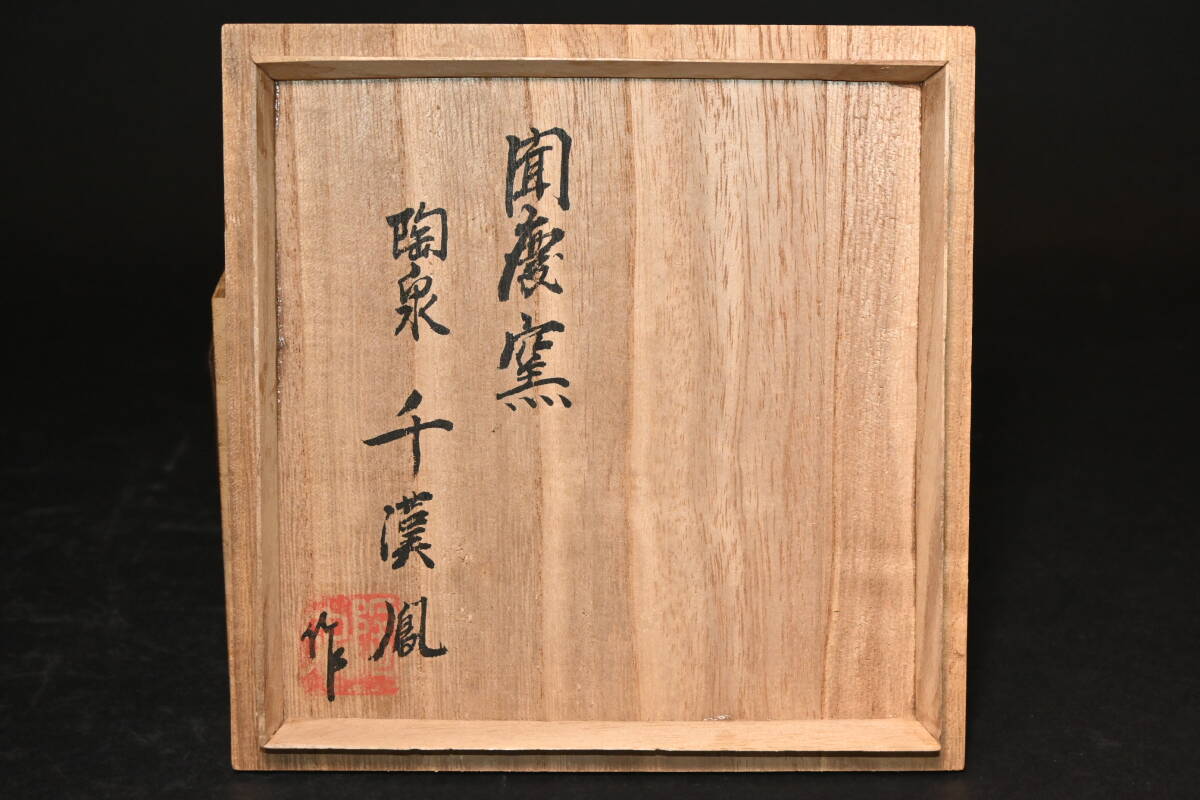 聞慶窯
陶泉 千漢鳳
作